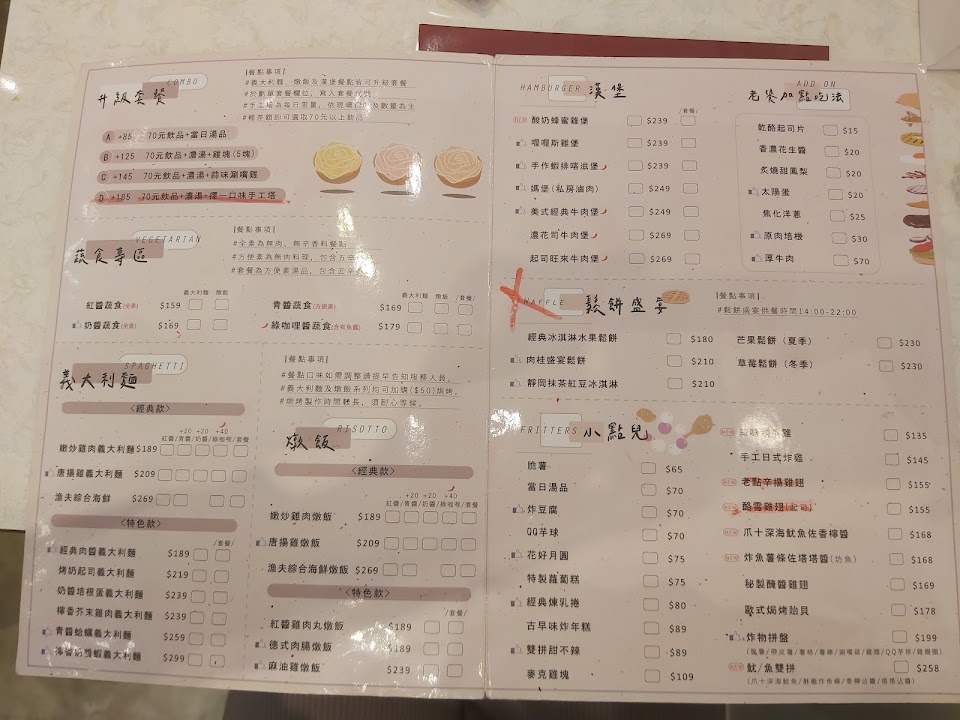 升級套餐
COMBO
[餐點事項]
#義大利麵、燉飯及漢堡餐點皆可升級套餐
#於劃單套餐欄位，寫入套餐代號
#補差額即可選取70元以上飲品
A +85 70元飲品+當日湯品
B +125 70元飲品+濃湯+雞塊(5塊)
C +145 70元飲品+濃湯+蒜味涮嘴雞
D +185 70元飲品+濃湯+擇一口味手工塔
蔬食專區
VEGETARIAN
[餐點事項]
#全素為無肉、無辛香料餐點
#方便素為無肉料理，包含五辛
#套餐為方便素湯品，包含五辛
義大利麵 燉飯
紅醬蔬食(全素) $159
奶醬蔬食(全素) $169
義大利麵 燉飯 /套餐/
青醬蔬食(方便素) $169
綠咖哩醬蔬食(含有魚露) $179
義大利麵
SPAGHETTI
<經典款>
+20 +20 +40
紅醬/青醬/奶醬/綠咖哩/套餐
嫩炒雞肉義大利麵 $189
唐揚雞義大利麵 $209
漁夫綜合海鮮 $269
<特色款>
/套餐/
經典肉醬義大利麵 $189
烤奶起司義大利麵 $219
奶醬培根蛋義大利麵 $239
檸香芥末雞肉義大利麵 $239
青醬蛤蠣義大利麵 $259
$299
[餐點事項]
#餐點口味如需調整請提早告知服務人員。
#義大利麵及燉飯系列均可加購($50)焗烤。
#焗烤製作時間較長，須耐心等候。
燉飯
RISOTTO
<經典款>
+20 +20 +40
紅醬/青醬/奶醬/綠咖哩/套餐
嫩炒雞肉燉飯 $189
唐揚雞燉飯 $209
漁夫綜合海鮮燉飯 $269
<特色款>
/套餐/
紅醬雞肉丸燉飯 $189
德式肉腸燉飯 $189
麻油雞燉飯 $239
HAMBURGER 漢堡
/套餐/
NEW 酸奶蜂蜜雞堡 $239
喔喔斯雞堡 $239
手作蝦排喀滋堡 $239
媽堡(私房滷肉) $249
美式經典牛肉堡 $249
濃花司牛肉堡 $269
起司旺來牛肉堡 $269
ADD ON
老饕加點吃法
乾酪起司片 $15
香濃花生醬 $20
炙燒甜鳳梨 $20
太陽蛋 $20
焦化洋蔥 $25
原肉培根 $30
厚牛肉 $70
WAFFLE 鬆餅盛宴
[餐點事項]
#鬆餅盛宴供餐時間14:00-22:00
經典冰淇淋水果鬆餅 $180
肉桂盛宴鬆餅 $210
靜岡抹茶紅豆冰淇淋 $210
芒果鬆餅(夏季) $230
草莓鬆餅(冬季) $230
FRITTERS 小點兒
脆薯 $65
當日湯品 $70
炸豆腐 $70
QQ芋球 $70
花好月圓 $75
特製蘿蔔糕 $75
經典煉乳捲 $80
古早味炸年糕 $89
雙拼甜不辣 $89
麥克雞塊 $109
NEW $135
手工日式炸雞 $145
NEW 老點辛揚雞翅 $155
NEW 酪雪雞翅(起司) $155
NEW 爪十深海魷魚佐香檸醬 $168
NEW 炸魚薯條佐塔塔醬(坊魚) $168
秘製醃醬雞翅 $169
歐式焗烤貽貝 $178
炸物拼盤 $199
NEW 魷/魚雙拼 $258